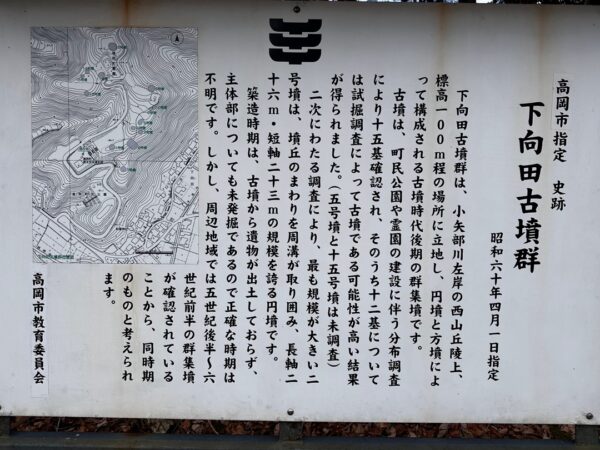 高岡市指定 史跡
下向田古墳群
昭和六十年四月一日指定
下向田古墳群は、小矢部川左岸の西山丘陵上、
標高100m程の場所に立地し、円墳と方墳によ
って構成される古墳時代後期の群集墳です。
古墳は、町民公園や霊園の建設に伴う分布調査
により十五基確認され、そのうち十二基について
は試掘調査によって古墳である可能性が高い結果
が得られました。(五号墳と十五号墳は未調査)
二次にわたる調査により、最も規模が大きい二
号墳は、墳丘のまわりを周溝が取り囲み、長軸二
十六m・短軸二十三mの規模を誇る円墳です。
築造時期は、古墳から遺物が出土しておらず、
主体部についても未発掘であるので正確な時期は
不明です。しかし、周辺地域では五世紀後半～六
世紀前半の群集墳
が確認されている
ことから、同時期
のものと考えられ
ます。
高岡市教育委員会